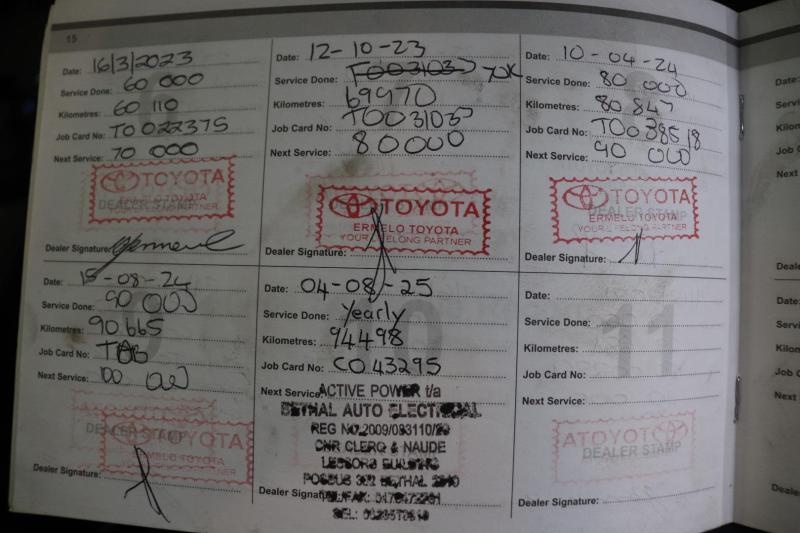 15
Date: 16/3/2023
Service Done: 60 000
Kilometres: 60 110
Job Card No: TO 022375
Next Service: 70 000
TOYOTA
DEALER STAMP
ERMELO TOYOTA
YOUR LIFELONG PARTNER
Dealer Signature:
Date: 12-10-23
Service Done: F003103 70K
Kilometres: 69970
Job Card No: TOO3103
Next Service: 80000
TOYOTA
ERMELO TOYOTA
YOUR LIFELONG PARTNER
Dealer Signature:
Date: 10-04-24
Service Done: 80 000
Kilometres: 80 847
Job Card No: TOO38518
Next Service: 90 000
TOYOTA
DEALER STAMP
ERMELO TOYOTA
YOUR LIFELONG PARTNER
Dealer Signature:
Date: 15-08-24
Service Done: 90 000
Kilometres: 90 665
Job Card No:
Next Service: 100 000
DEALER STAMP
TOYOTA
ERMELO TOYOTA
Dealer Signature:
10
Date: 04-08-25
Service Done: Yearly
Kilometres: 94498
Job Card No: CO 43295
Next Service:
ACTIVE POWER t/a
BETHAL AUTO ELECTRICAL
REG NO.2009/093110/23
CNR CLERQ & NAUDE
LESSORS BUILDING
POSBUS 302 BETHAL 2310
TEL/FAX:
SEL:
Dealer Signature:
11
Date:
Service Done:
Kilometres:
Job Card No:
Next Service:
TOYOTA
DEALER STAMP
Dealer Signature:
Date:
Service
Kilomet
Job C
Next
Deale
Date:
Servi
Kilom
Job C
Next